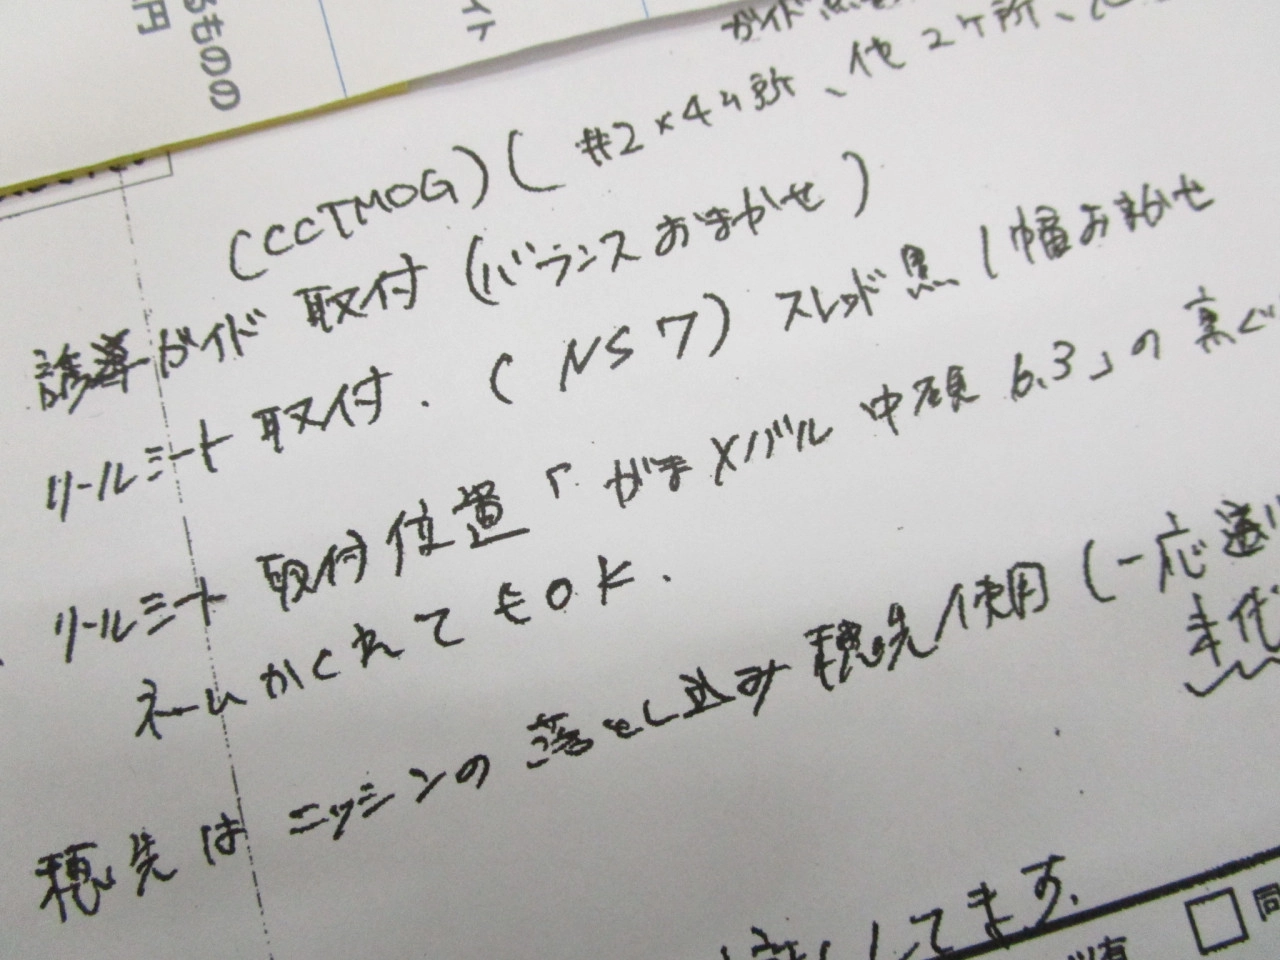 るものの
円
イテ
ガイド
(CCCTMOG)(#2×4ヶ所、他2ヶ所、
誘導ガイド取付(バランスおまかせ)
リールシート取付.(NS7)スレッド黒/幅おまかせ
リールシート取付位置「がまメバル中硬6.3」の
ネームかくれてもOK.
穂先はニッシンの落とし込み穂先使用(一応送り
してます.
同